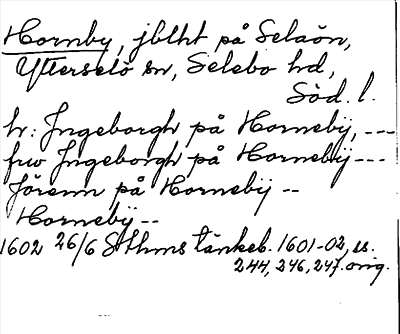 Hornby, jblht på Selaön,
Ytterselö sn, Selebo hd,
Söd. l.
hr: Ingeborgh på Hornebÿ, ---
frw Ingeborgh på Hornebÿ ---
Jörenn på Hornebÿ --
Hornebÿ --
1602 26/6 Sthms tänkeb. 1601-02, ss.
244, 246, 247. orig.